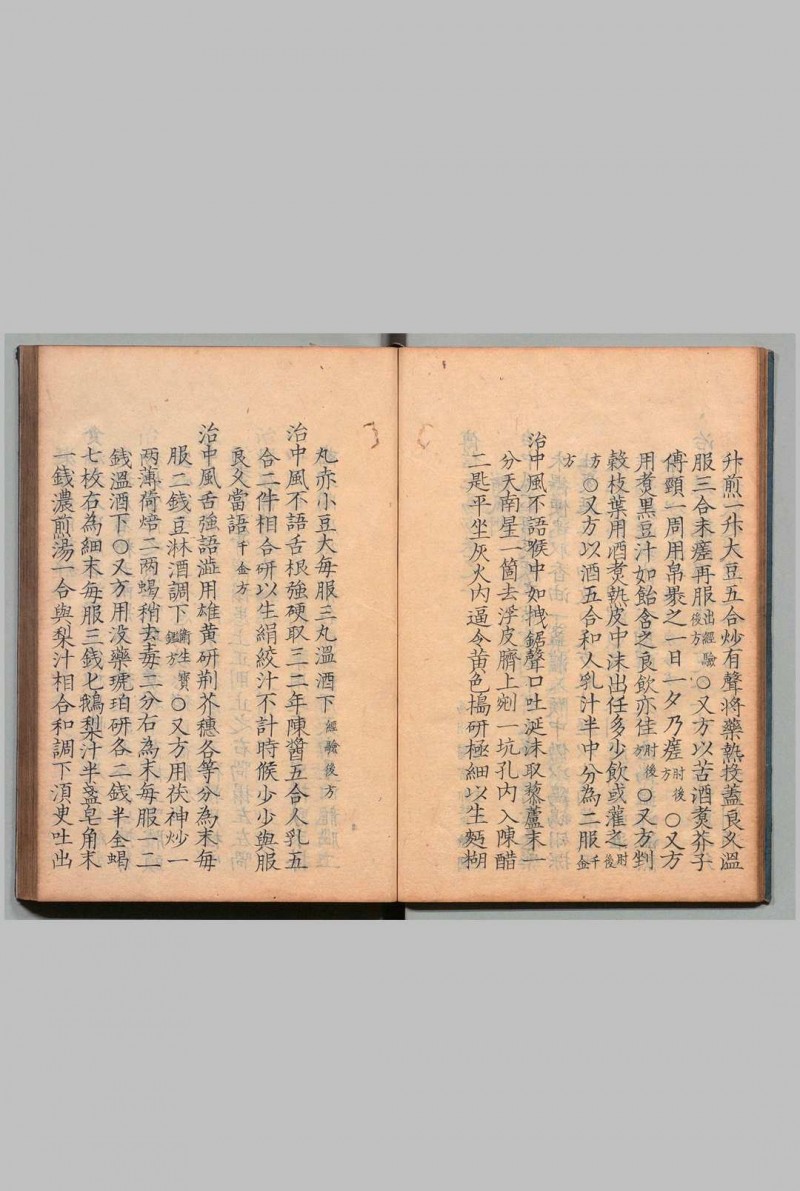 升煎一升大豆五合炒有聲將藥熱投蓋良久溫
服三合未瘥再服出經驗後方〇又方以苦酒煑芥子
傅頸一周用帛裹之一日一夕乃瘥肘後方〇又方
用煑黑豆汁如飴含之良飲亦佳肘後方〇又方剉
榖枝葉用酒煑熟皮中沫出任多少飲或灌之肘後
方〇又方以酒五合和人乳汁半中分為二服千金
方
治中風不語㗋中如拽鋸聲口吐涎沫取藜蘆末一
分天南星一箇去浮皮臍上剜一坑孔內入陳醋
二匙平坐灰火內逼令黄色搗研極細以生麪糊
丸赤小豆大每服三丸溫酒下經驗後方
治中風不語舌根強硬取三二年陳醬五合人乳五
合二件相合研以生絹絞汁不計時候少少與服
良久當語千金方
治中風舌強語澁用雄黄研荆芥穗各等分為末每
服二錢豆淋酒調下衛生寶鑑方〇又方用茯神炒一
两薄荷焙二两蝎稍去毒二分右為末每服一二
錢溫酒下〇又方用没藥琥珀研各二錢半全蝎
七枚右為細末每服三錢匕鵝梨汁半盞皂角末
一錢濃煎湯一合與梨汁相合和調下湏㬰吐出